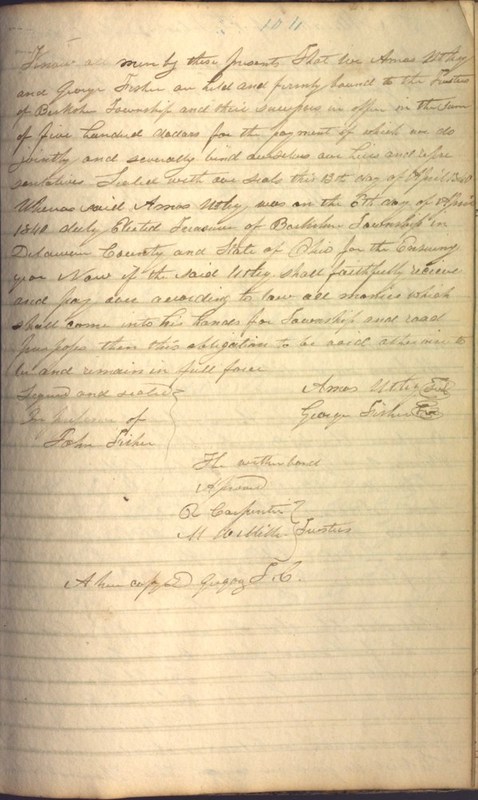 104
Know all men by these presents That we Amos Utley
and George Fisher are held and firmly bound to the Trustees
of Berkshire Township and their sucessors in office in the sum
of five hundred dollars for the payment of which we do
jointly and severally bind ourselves our heirs and repre
sentatives Sealed with our seals this 13th day of April 1840
Whereas said Amos Utley was on the 6th day of April
1840 duly Elected Treasurer of Berkshire Township in
Delaware County and State of Ohio for the Ensuing
year Now if the said Utley shall faithfully recieve
and pay over according to law all monies which
shall come into his hands for Township and road
purposes then this obligation to be void otherwise to
be and remain in full force
Signed and sealed
In presence of
John Fisher
Amos Utley Seal
George Fisher Seal
The within bond
Approved
R Carpenter
M
Trustees
A true copy Gregory T. C.